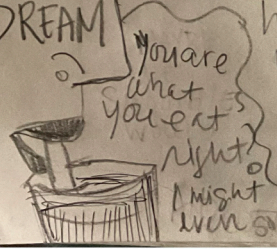 DREAM
you are
what
you eat
right?
I might
even